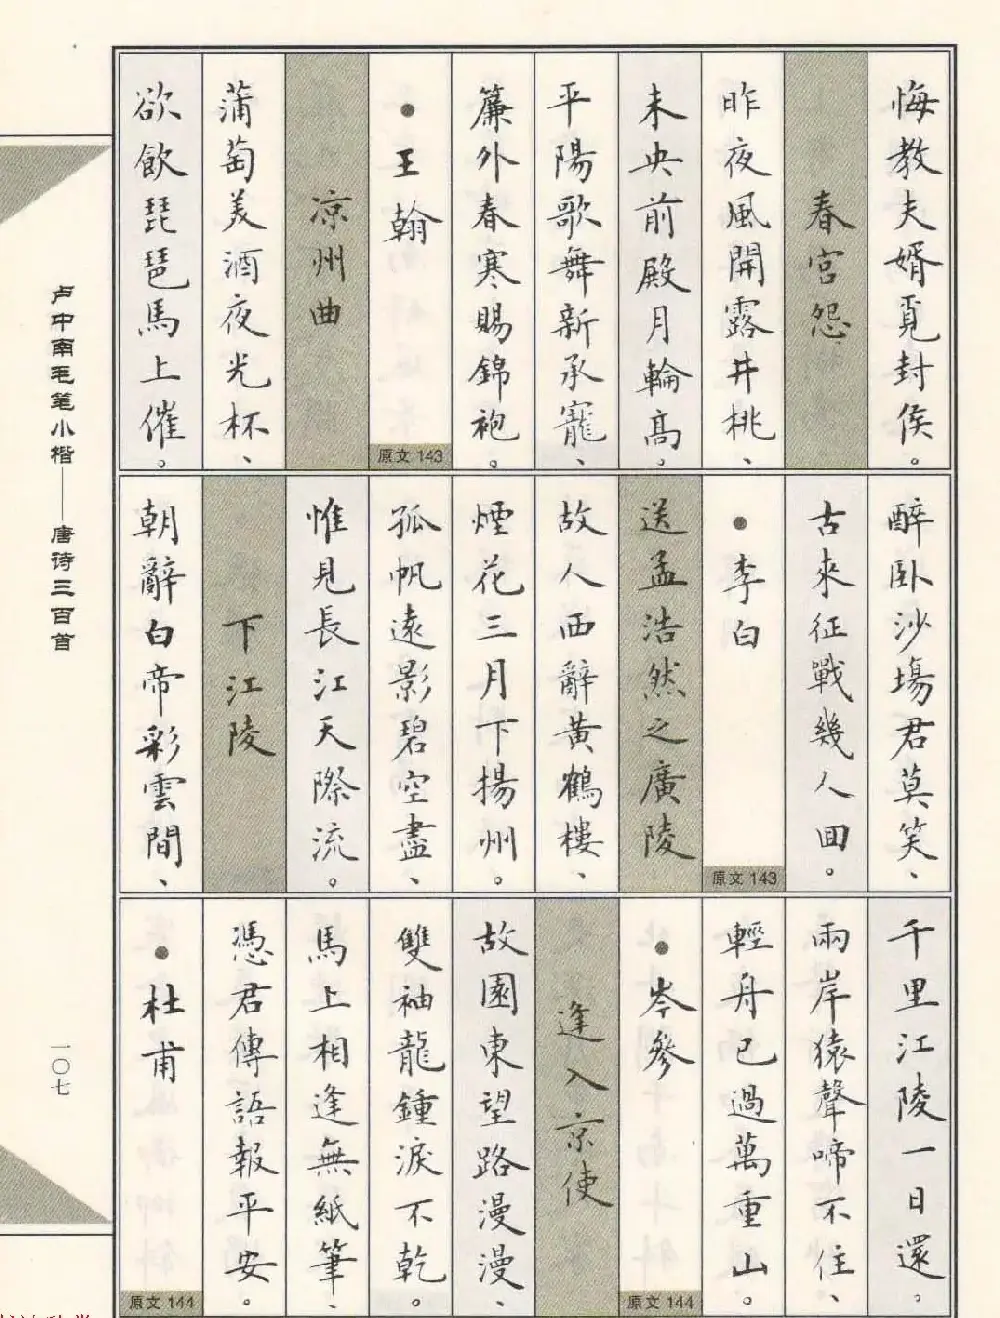 悔教夫婿覓封侯。
春宮怨
昨夜風開露井桃、
未央前殿月輪高。
平陽歌舞新承寵、
簾外春寒賜錦袍。
●王翰
原文 143
凉州曲
蒲萄美酒夜光杯、
欲飲琵琶馬上催。
醉臥沙場君莫笑、
古來征戰幾人回。
●李白
原文 143
送孟浩然之廣陵
故人西辭黃鶴樓、
煙花三月下揚州。
孤帆遠影碧空盡、
惟見長江天際流。
下江陵
朝辭白帝彩雲間、
千里江陵一日還。
兩岸猿聲啼不住、
輕舟已過萬重山。
●岑參
原文 144
逢入京使
故園東望路漫漫、
雙袖龍鍾淚不乾。
馬上相逢無紙筆、
憑君傳語報平安。
●杜甫
原文 144
卢中南毛笔小楷——唐诗三百首
一〇七